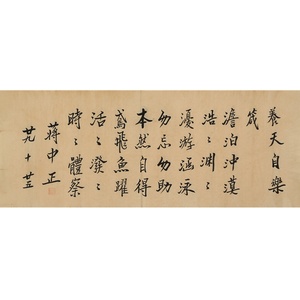 養天自樂
箴
澹泊沖漠
浩〻淵〻
優游涵泳
勿忘勿助
本然自得
鳶飛魚躍
活〻潑〻
時〻體察
蔣中正
廿九十廿五